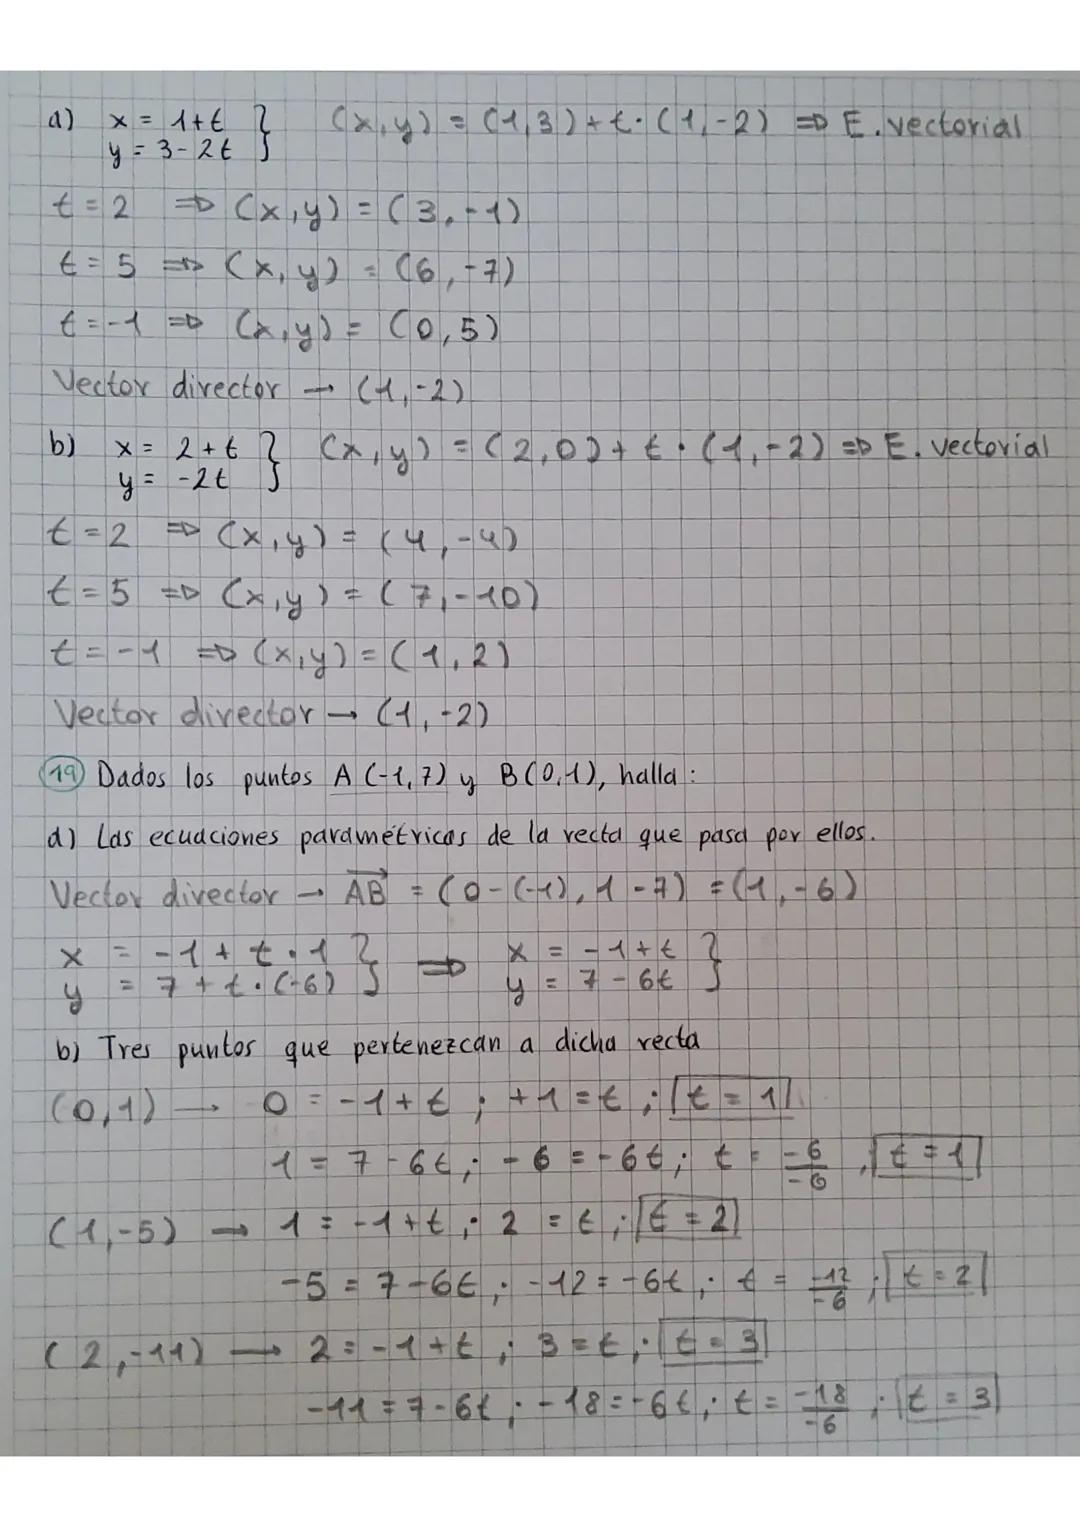 a) x = 1+t } (x,y) = (1,3)+t·(1,-2) ⇒ E. vectorial
y = 3-2t
t = 2 ⇒ (x,y) = (3,-1)
t = 5 ⇒ (x,y) = (6,-7)
t = -1 ⇒ (x,y) = (0,5)
Vector director → (1,-2)
b) x = 2+t } (x,y) = (2,0)+t·(1,-2) ⇒ E. vectorial
y = -2t
t = 2 ⇒ (x,y) = (4,-4)
t = 5 ⇒ (x,y) = (7,-10)
t = -1 ⇒ (x,y) = (1,2)
Vector director → (1,-2)
19 Dados los puntos A(-1,7) y B(0,1), halla:
a) Las ecuaciones paramétricas de la recta que pasa por ellos.
Vector director → AB = (0-(-1), 1-7) = (1,-6)
x = -1+t·1 } ⇒ x = -1+t }
y = 7+t·(-6) y = 7-6t
b) Tres puntos que pertenezcan a dicha recta
(0,1) → 0 = -1+t ; +1=t ; t = 1
1 = 7-6t ; -6 = -6t ; t = -6/-6 ; t = 1
(1,-5) → 1 = -1+t ; 2 = t ; t = 2
-5 = 7-6t ; -12 = -6t ; t = -12/-6 ; t = 2
(2,-11) → 2 = -1+t ; 3 = t ; t = 3
-11 = 7-6t ; -18 = -6t ; t = -18/-6 ; t = 3